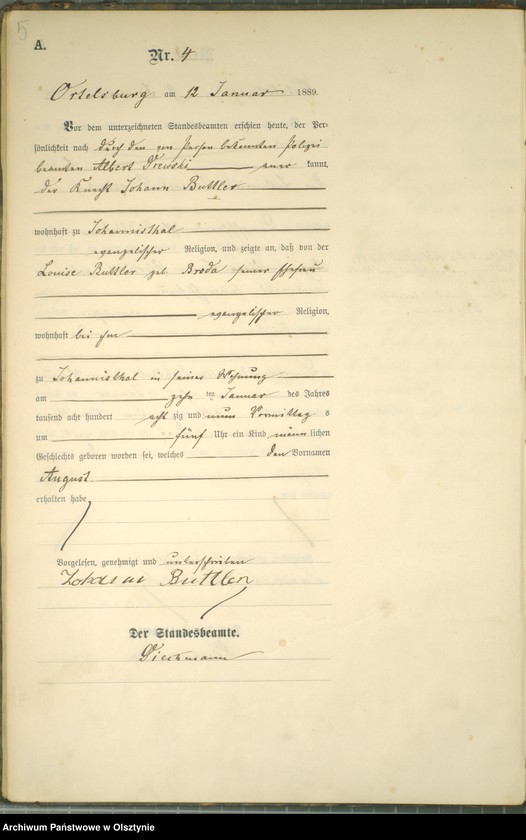 5
A.
Nr. 4
Ortelsburg am 12 Januar 1889.
Vor dem unterzeichneten Standesbeamten erschien heute, der Per-
sönlichkeit nach durch den von Person bekannten Polizei
beamten Albert kannt,
der Knecht Johann Buttler
wohnhaft zu Johannisthal
evangelischer Religion, und zeigte an, daß von der
Louise Buttler geb. Broda seiner Ehefrau
evangelischer Religion,
wohnhaft bei ihm
zu Johannisthal in seiner Wohnung
am zehn ten Januar des Jahres
tausend acht hundert acht zig und neun Vormittag s
um fünf Uhr ein Kind männ lichen
Geschlechts geboren worden sei, welches den Vornamen
August
erhalten habe
Vorgelesen, genehmigt und unterschrieben
Johann Buttler
Der Standesbeamte.
Archiwum Państwowe w Olsztynie